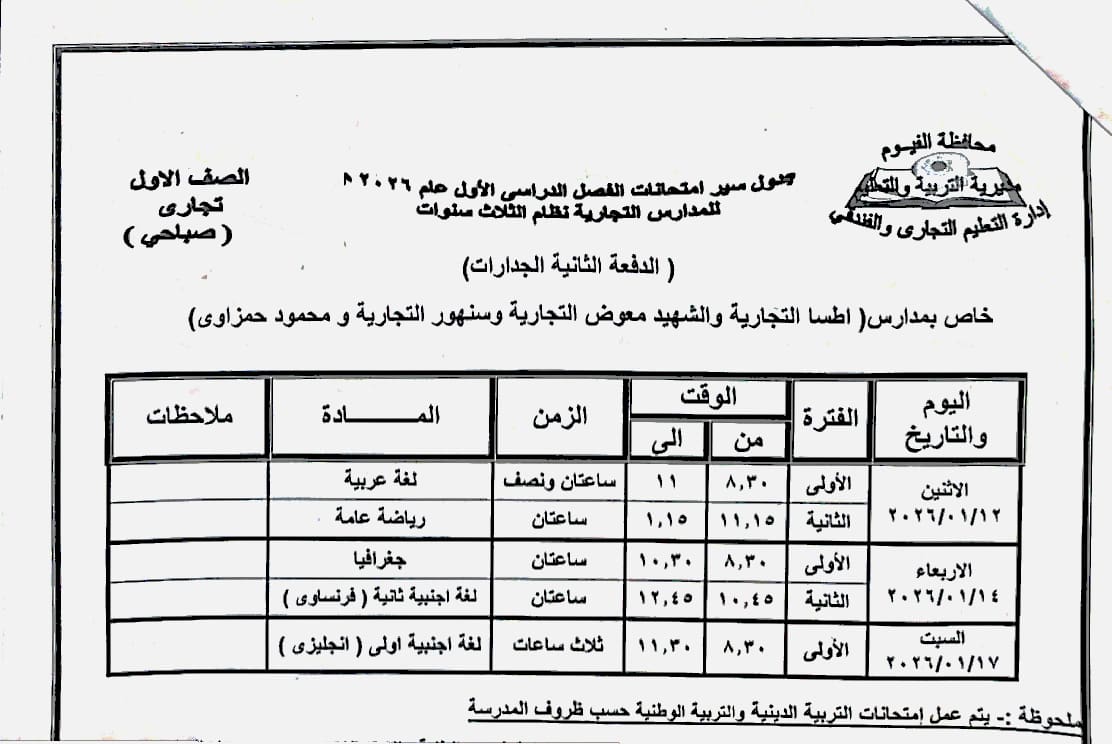 محافظة الفيوم
مديرية التربية والتعليم
إدارة التعليم التجارى والفندقي
سير امتحانات الفصل الدراسى الأول عام ٢٠٢٦
للمدارس التجارية نظام الثلاث سنوات
الصف الاول
تجارى
( صباحي )
( الدفعة الثانية الجدارات)
خاص بمدارس( اطسا التجارية والشهيد معوض التجارية وسنهور التجارية و محمود حمزاوى)
اليوم والتاريخ | الفترة | الوقت | الزمن | المـــــــادة | ملاحظات
من | الى
الاثنين ٢٠٢٦/٠١/١٢ | الأولى | ٨,٣٠ | ١١ | ساعتان ونصف | لغة عربية
الثانية | ١١,١٥ | ١,١٥ | ساعتان | رياضة عامة
الاربعاء ٢٠٢٦/٠١/١٤ | الأولى | ٨,٣٠ | ١٠,٣٠ | ساعتان | جغرافيا
الثانية | ١٠,٤٥ | ١٢,٤٥ | ساعتان | لغة اجنبية ثانية ( فرنساوى )
السبت ٢٠٢٦/٠١/١٧ | الأولى | ٨,٣٠ | ١١,٣٠ | ثلاث ساعات | لغة اجنبية اولى ( انجليزى )
ملحوظة :- يتم عمل إمتحانات التربية الدينية والتربية الوطنية حسب ظروف المدرسة